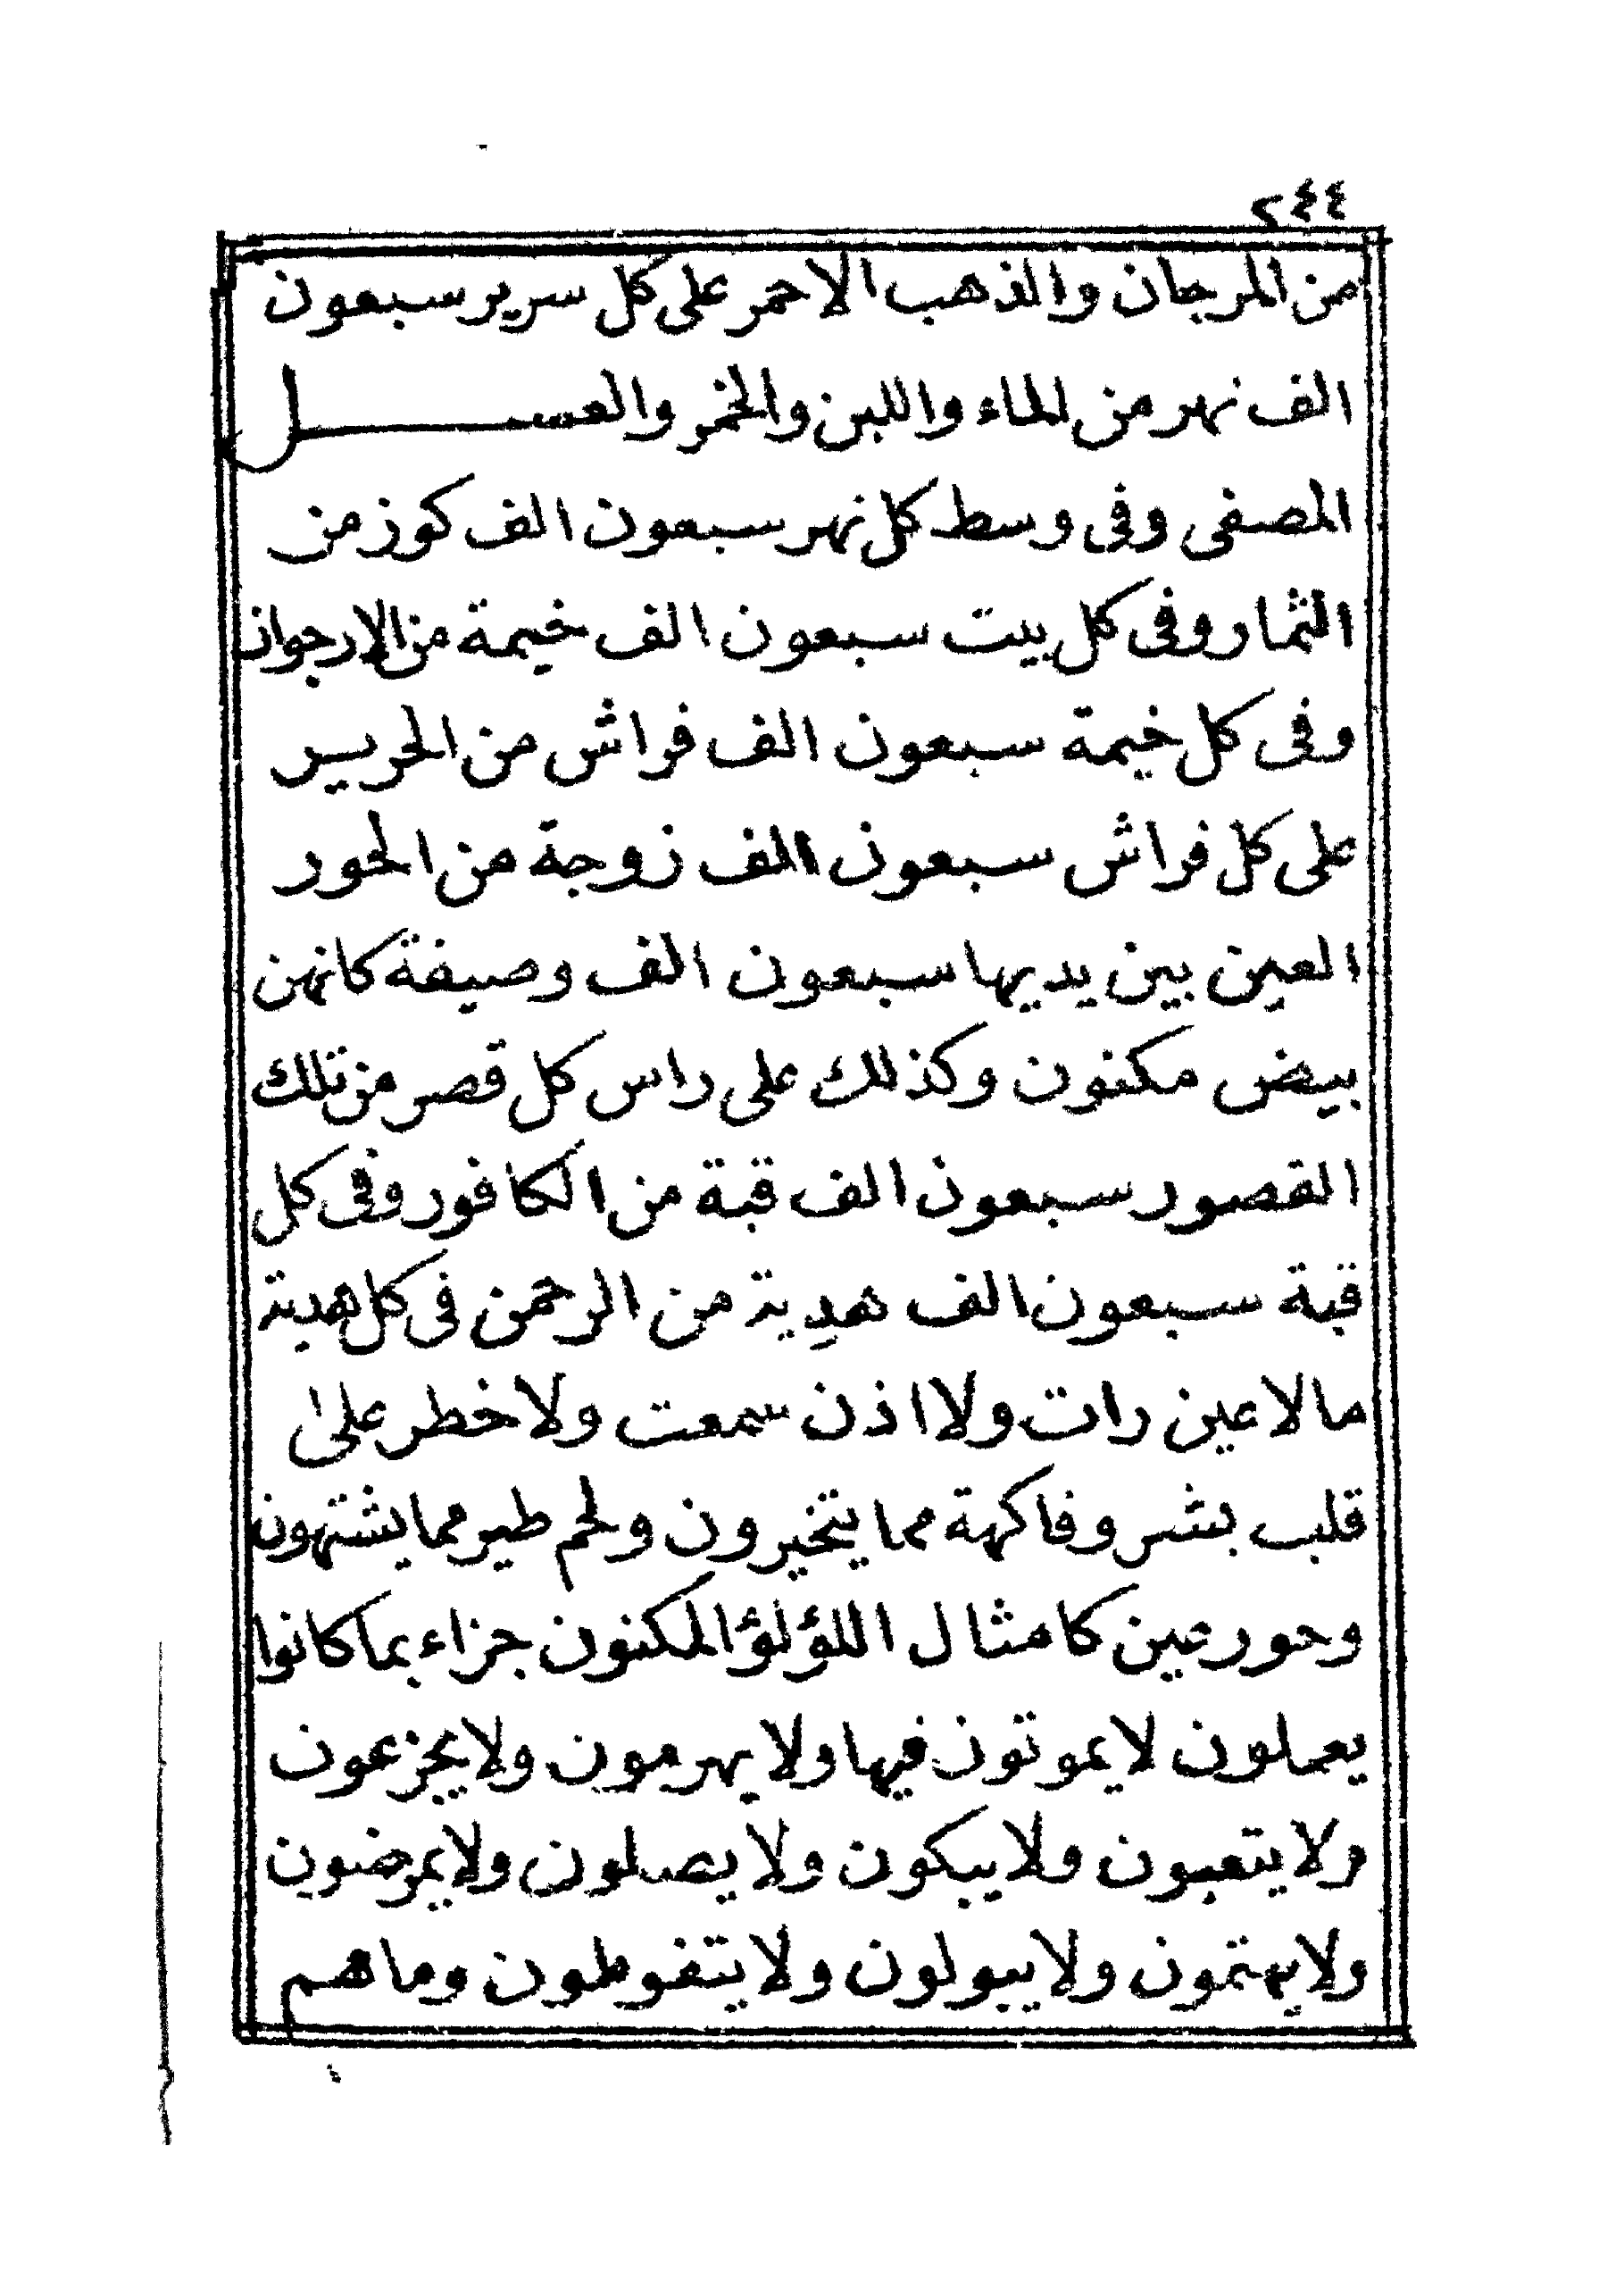 ٢٤٤
من المرجان والذهب الاحمر على كل سرير سبعون
الف نهر من الماء واللبن والخمر والعسل
المصفى وفى وسط كل نهر سبعون الف كوز من
الثمار وفى كل بيت سبعون الف خيمة من الارجوان
وفى كل خيمة سبعون الف فراش من الحرير
على كل فراش سبعون الف زوجة من الحور
العين بين يديها سبعون الف وصيفة كانهن
بيض مكنون وكذلك على راس كل قصر من تلك
القصور سبعون الف قبة من الكافور وفى كل
قبة سبعون الف هدية من الرحمن فى كل هدية
مالا عين رات ولا اذن سمعت ولا خطر على
قلب بشر وفاكهة مما يتخيرون ولحم طير مما يشتهون
وحور عين كامثال اللؤلؤ المكنون جزاء بما كانوا
يعملون لا يموتون فيها ولا يهرمون ولا يجزعون
ولا يتعبون ولا يبكون ولا يصلون ولا يمرضون
ولا يهتمون ولا يبولون ولا يتغوطون وما هم